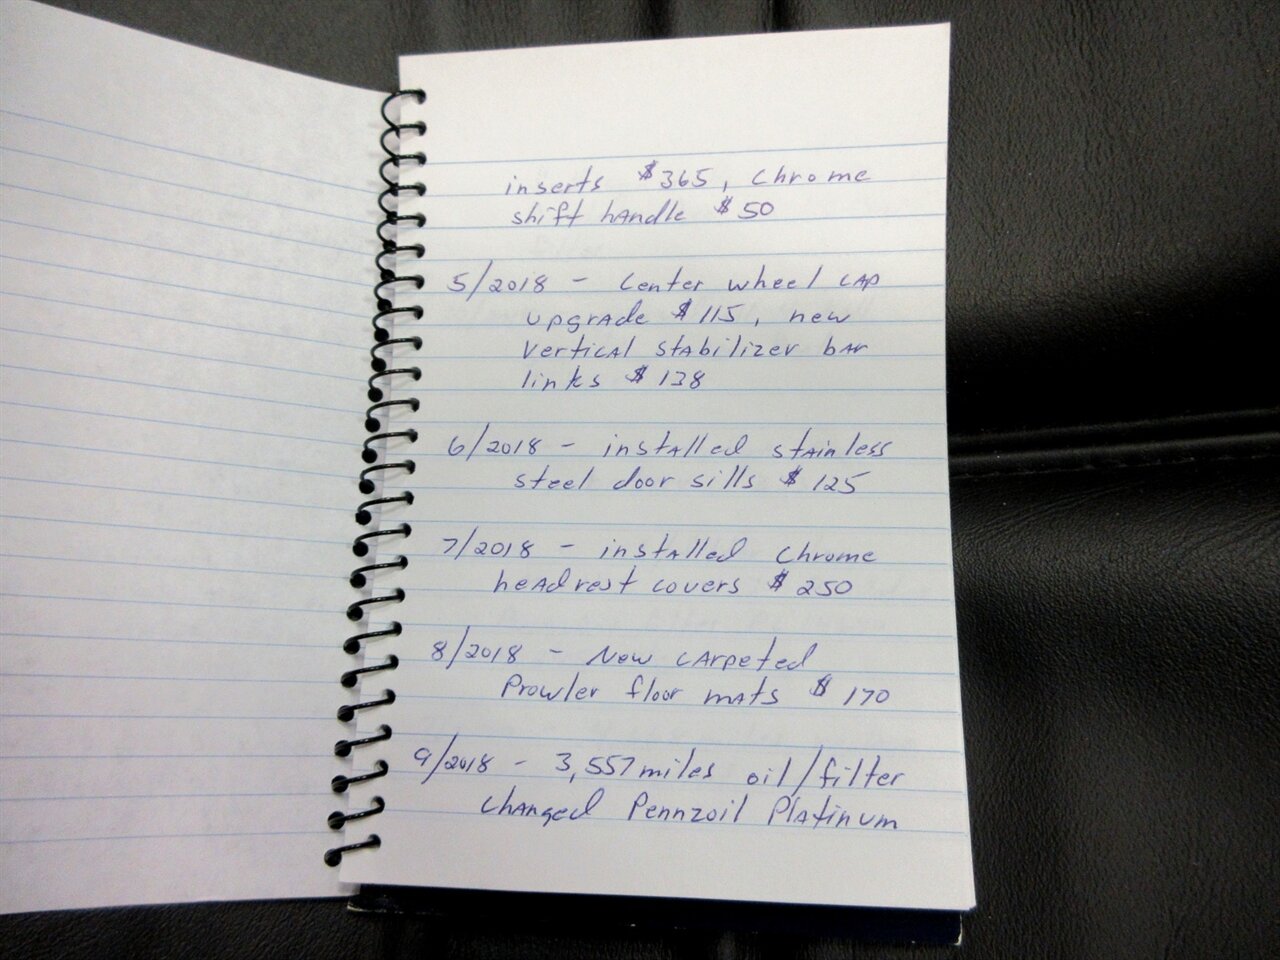 inserts $365, chrome
shift handle $50
5/2018 - Center wheel cap
upgrade $115, new
vertical stabilizer bar
links $138
6/2018 - installed stainless
steel door sills $125
7/2018 - installed chrome
headrest covers $250
8/2018 - New carpeted
Prowler floor mats $170
9/2018 - 3,557 miles oil/filter
changed Pennzoil Platinum